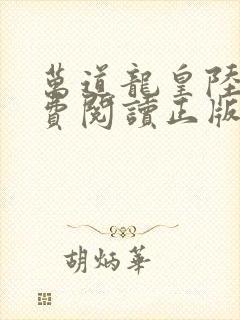 萬道龍皇陸
費閱讀正版
胡炳華